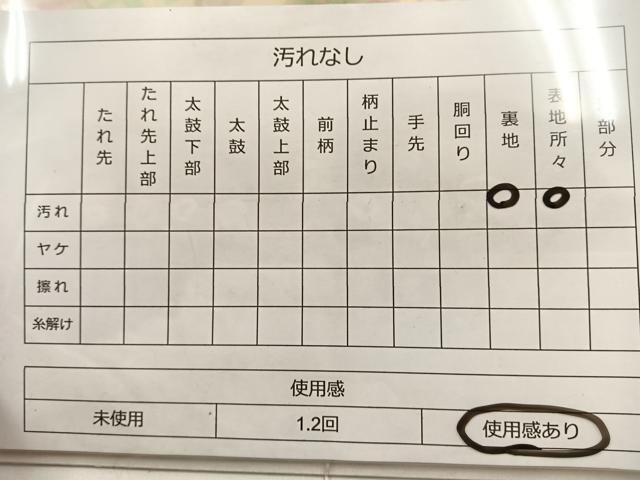 汚れなし
たれ先 たれ先上部 太鼓下部 太鼓 太鼓上部 前柄 柄止まり 手先 胴回り 裏地 表地所々 部分
汚れ
ヤケ
擦れ
糸解け
使用感
未使用 1.2回 使用感あり